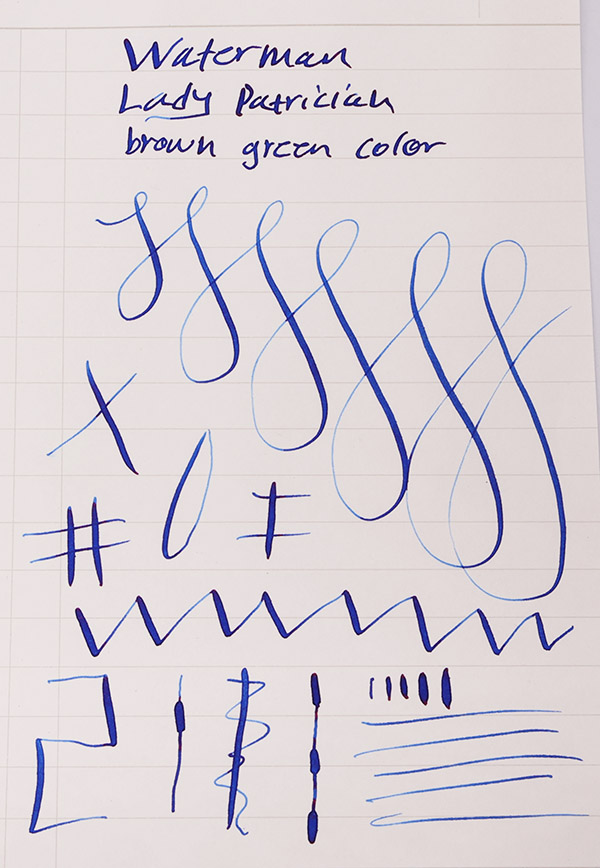 Waterman
Lady Patrician
brown green color